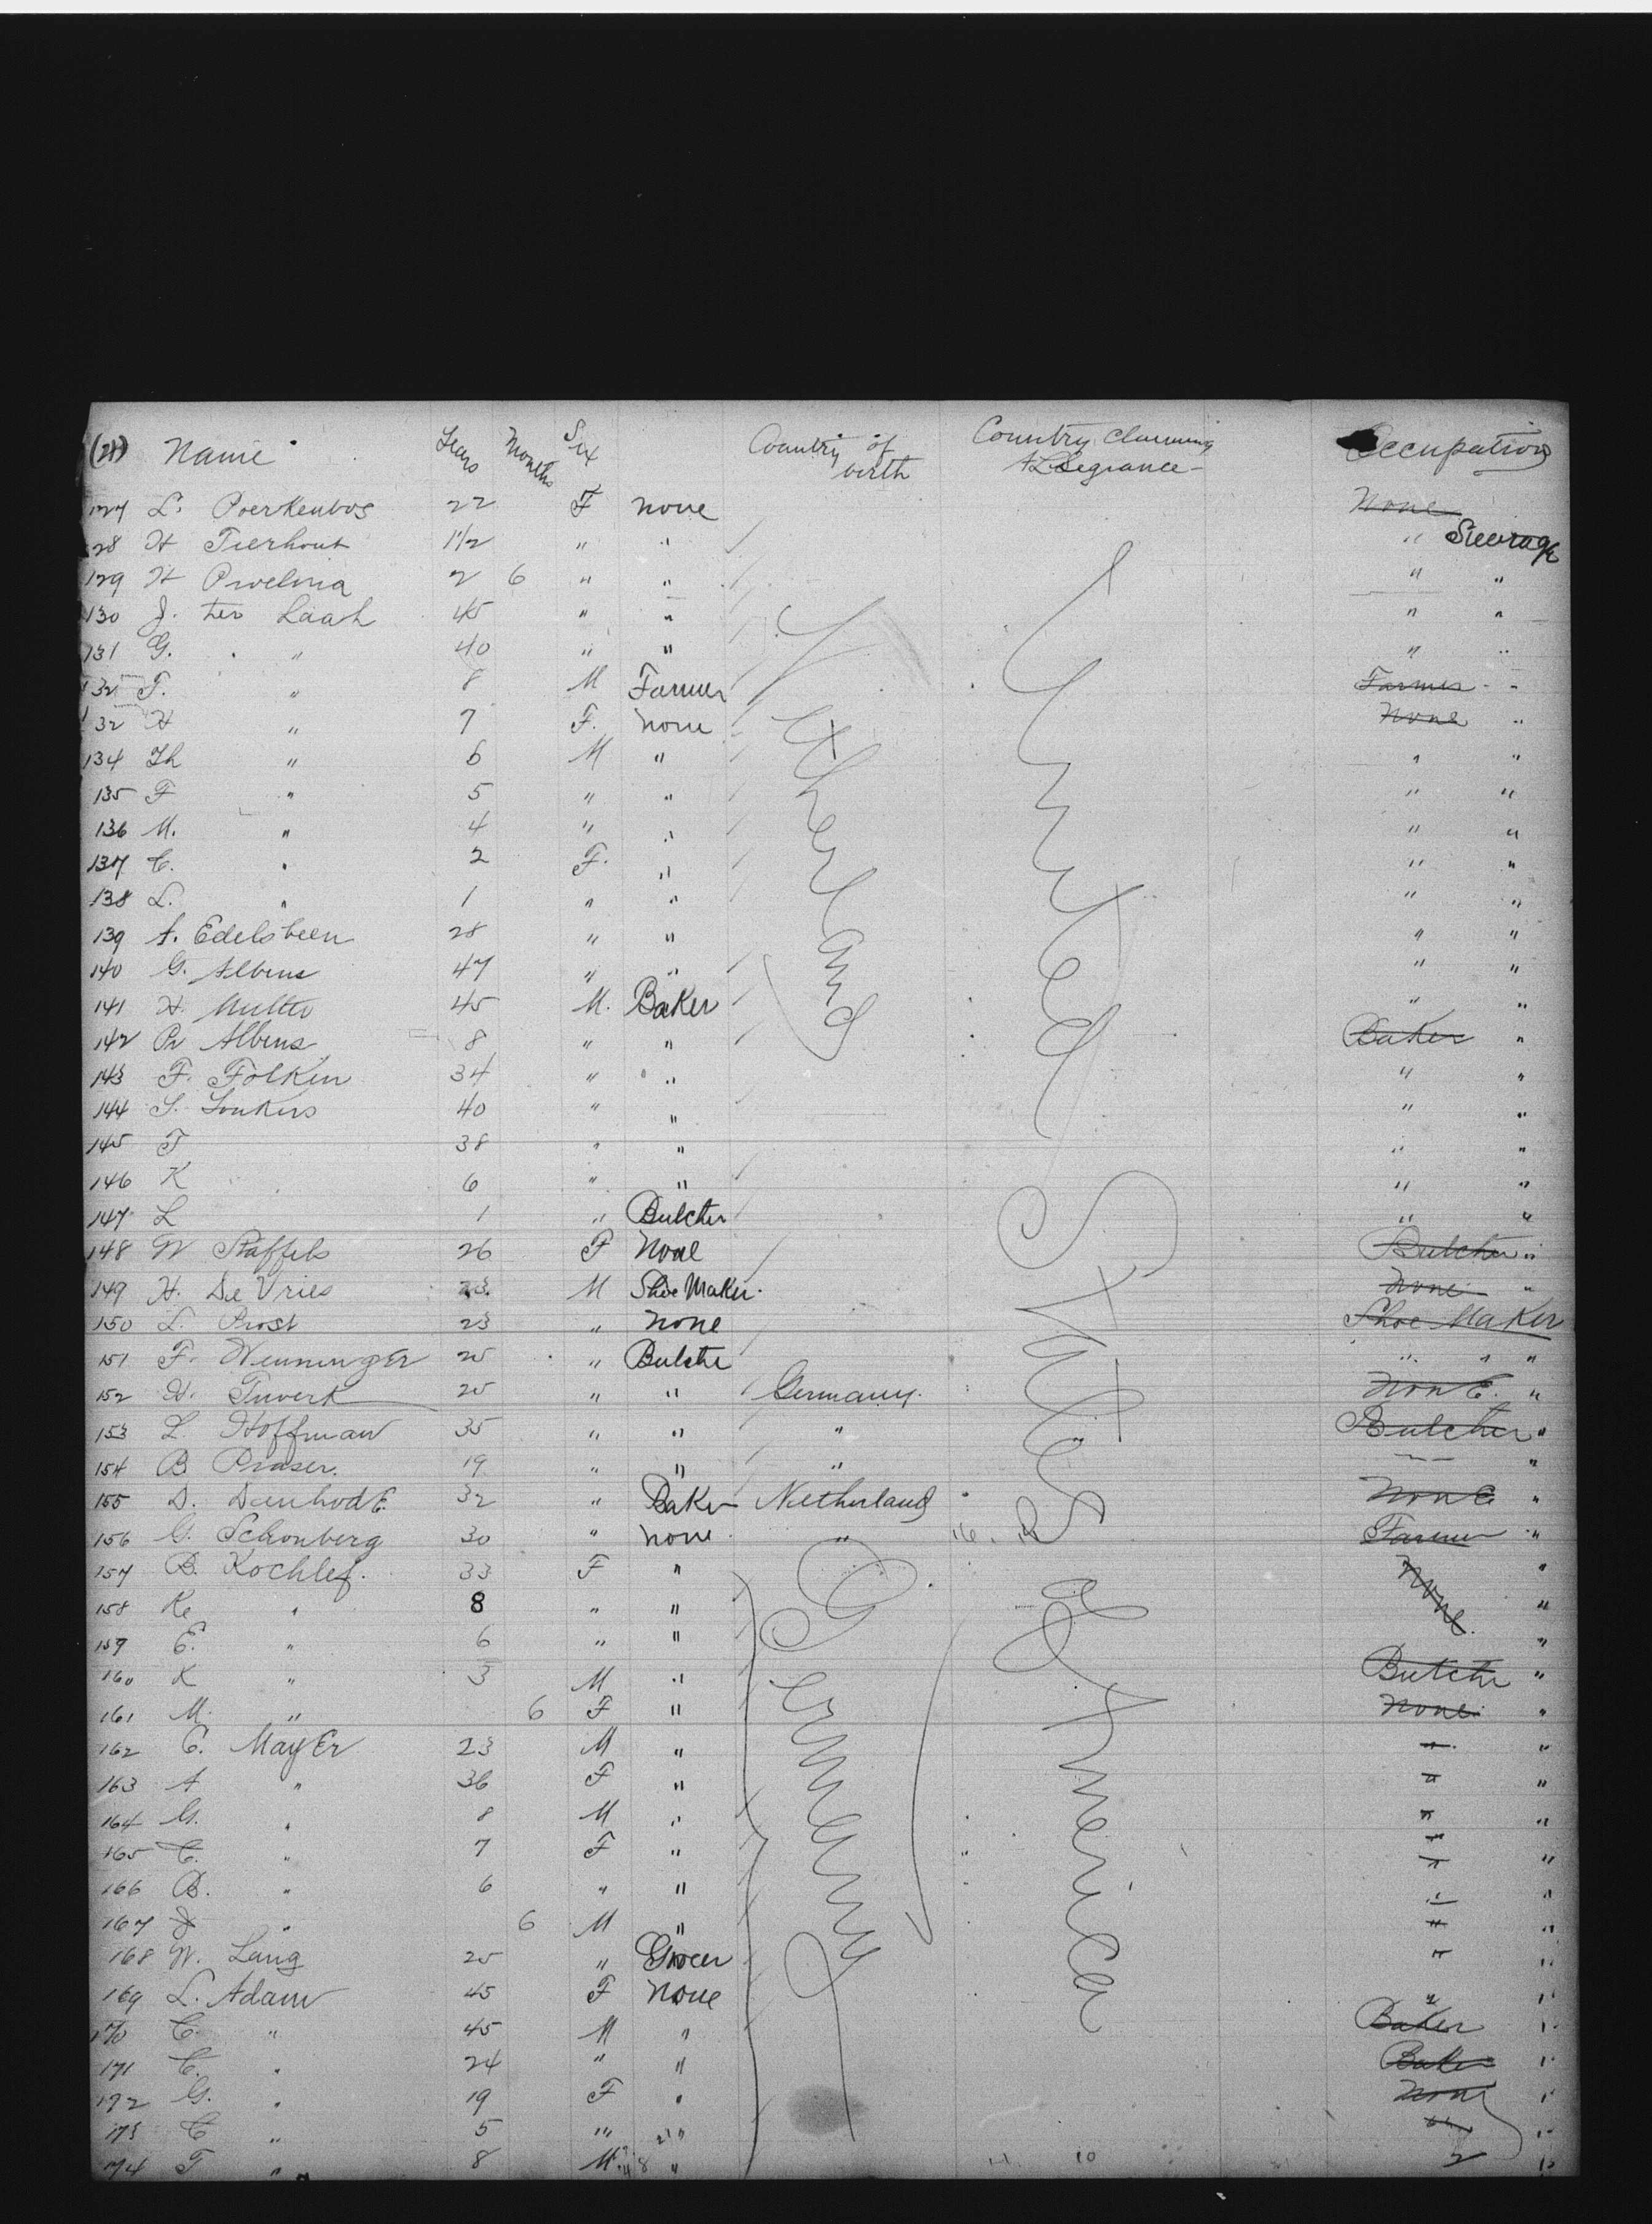 (21) Name Years Months Sex Country of birth Country Claiming Allegiance Occupation
127 L. Poerkenbos 22 F none None
128 H Tierhout 1 1/2 " " " Steerage
129 H Proelina 2 6 " " " "
130 J. ter Laak 45 " " " "
131 G. " 40 " " " "
132 F. " 8 M Farmer Farmer "
132 H " 7 F. none None "
134 Th " 6 M " " "
135 F " 5 " " " "
136 M. " 4 " " " "
137 C. " 2 F. " " "
138 L. " 1 " " " "
139 A. Edelsbeen 28 " " " "
140 G. Albens 47 " " " "
141 H. Multer 45 M. Baker " "
142 Pr Albens 8 " " Baker "
143 F. Folken 34 " " " "
144 S. Lonkers 40 " " " "
145 T 38 " " " "
146 K 6 " " " "
147 L 1 " Butcher " "
Netherland
United States of America
148 W Staffels 26 F None Butcher "
149 H. De Vries 23 M Shoe Maker None "
150 L. Prost 23 " none Shoe Maker
151 F. Wenninger 25 " Butche " " "
152 H. Tuwerk 25 " " Germany. None "
153 L. Hoffman 35 " " " Butcher "
154 B. Praser. 19 " " " "
155 D. Dunhode 32 " Baker Netherland None "
156 G. Schonberg 30 " none " Farmer "
157 B. Kochlef. 33 F " None. "
158 Ke " 8 " " "
159 E. " 6 " " "
160 K " 3 M " Butche "
161 M. " 6 F " None "
162 C. Mayer 23 M " " "
163 A " 36 F " " "
164 G. " 8 M " " "
165 C. " 7 F " " "
166 B. " 6 " " " "
167 J " 6 M " " "
Germany
168 W. Lang 25 " Grocer " "
169 L. Adam 45 F None " "
170 C. " 45 M " Baker "
171 C. " 24 " " Baker "
172 G. " 19 F " None "
173 C " 5 " " "
174 F " 8 M " "